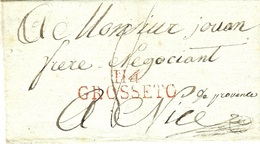 A Monsieur jouan
frere Negociant
114
GROSSETO
de provence
A Nice